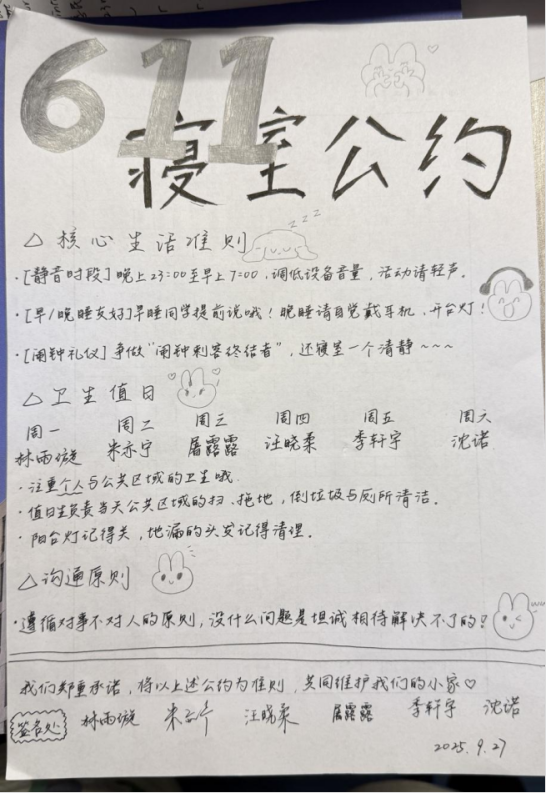 611
寝室公约
△ 核心生活准则
zzz
·[静音时段]晚上23:00至早上7:00,调低设备音量,活动请轻声。
·[早/晚睡友好]早睡同学提前说哦!晚睡请自觉戴耳机,开台灯!
·[闹钟礼仪]争做“闹钟刺客终结者”,还寝室一个清静~~~~
△ 卫生值日
周一 周二 周三 周四 周五 周六
林雨漩 朱亦宁 屠露露 汪晓柔 李轩宇 沈诺
·注重个人与公共区域的卫生哦.
·值日生负责当天公共区域的扫、拖地,倒垃圾与厕所清洁。
·阳台灯记得关,地漏的头发记得清理。
△沟通原则
·遵循对事不对人的原则,没什么问题是坦诚相待解决不了的?
我们郑重承诺,将以上述公约为准则,共同维护我们的小家♡
签名处 林雨漩 朱亦宁 汪晓柔 屠露露 李轩宇 沈诺
2025.9.27